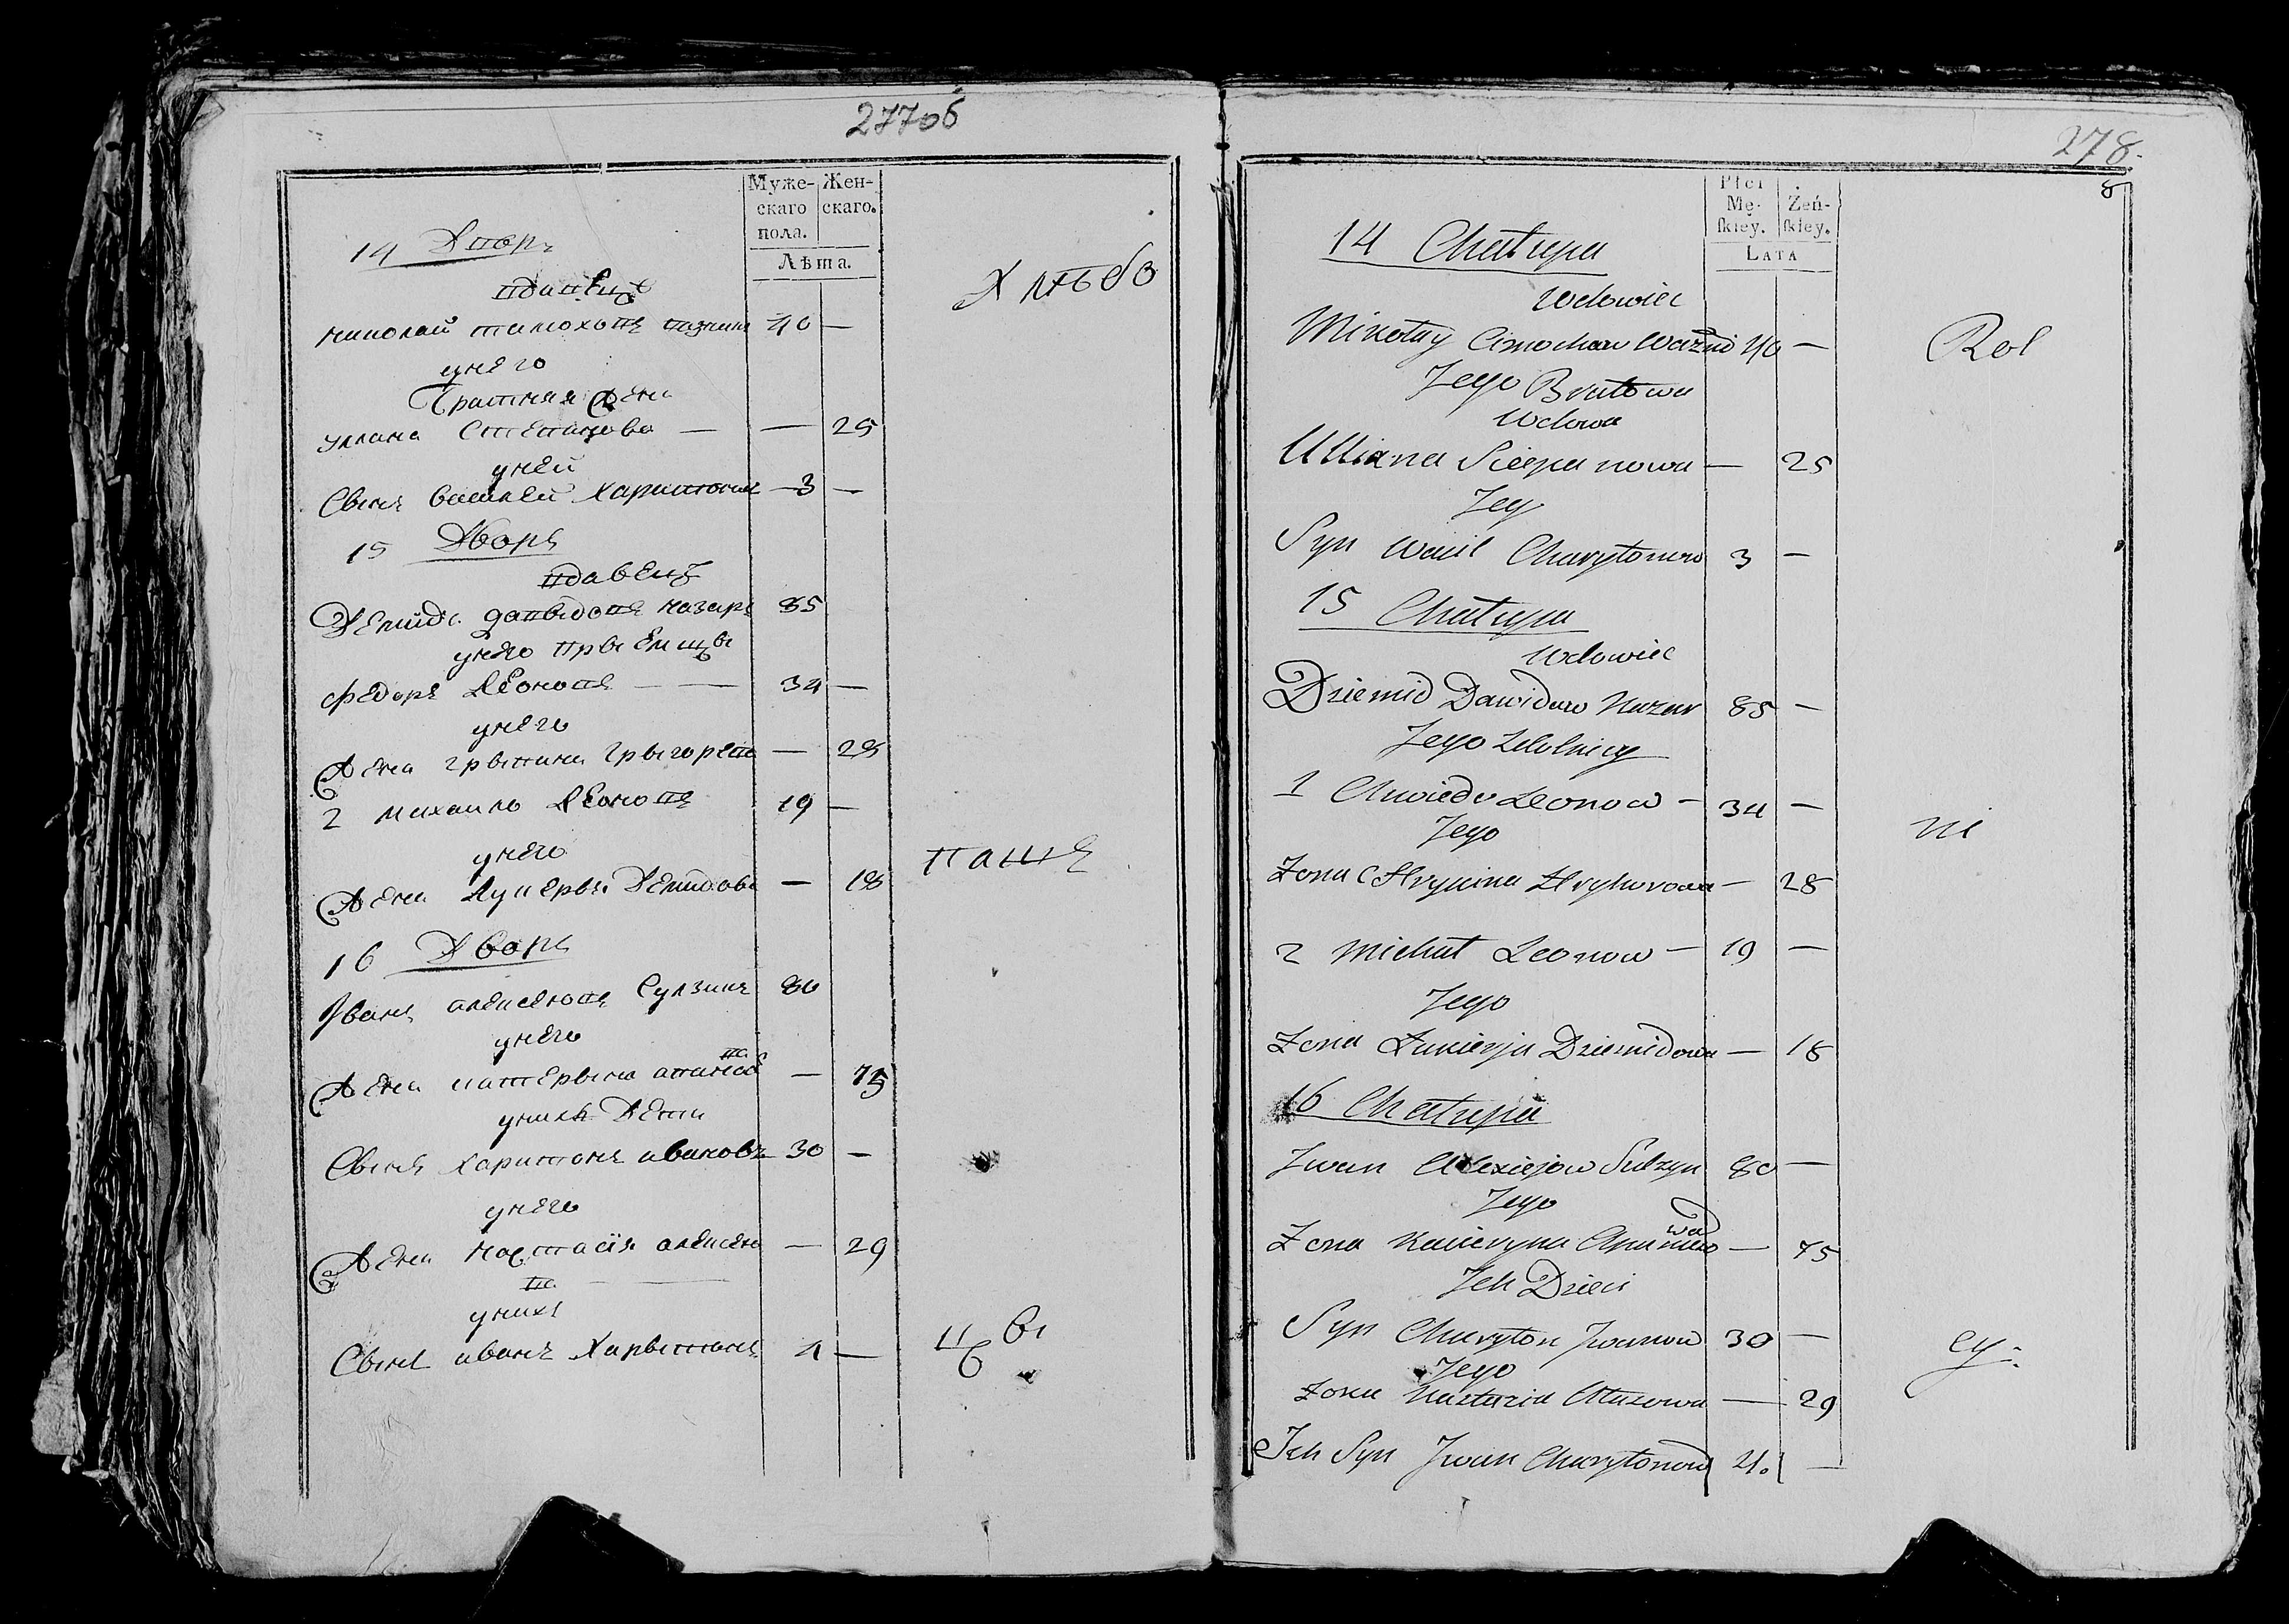 277об
Муже- Жен-
скаго скаго.
пола.
Лѣта.
14 Дворъ
вдавецъ
Николай тимоховъ 40 —
унего
братняя жена
уляна Степанова — — 25
уней
Сынъ василей Харитоновъ 3 —
15 Дворъ
вдавецъ
Демидъ давыдовъ назаръ 85
унего прыемцы
Федоръ Леоновъ — 34 —
унего
жена грыпина грыгорева — 28
2 михаило Леоновъ 19 —
унего
жена Лукерья Демидова — 18
16 Дворъ
Иванъ алексеювъ Сулзинъ 80
унего
жена катерына апанасова — 75
унихъ Дети
Сынъ харитонъ ивановъ 30 —
унего
жена настасія алексеева — 29
унихъ
Сынъ иванъ Харытоновъ 4 —
Хлѣбо
паше
цы
278.
8
Płci
Mę- Żeń-
skiey. skiey.
LATA
14 Chałupa
Wdowiec
Mikołay Cimochow 40 —
Jego Bratowa
Wdowa
Ulliana Sciepanowa — 25
Jey
Syn Wasil Charytonow 3 —
15 Chałupa
Wdowiec
Dziemid Dawidow Nazar 85 —
Jego
1 Chwiedor Leonow — 34 —
Jego
Zona Hrypina Hryhorowa — 28
2 Michał Leonow — 19 —
Jego
Zona Łukierja Dziemidowa — 18
16 Chałupa
Jwan Alexiejow Sulzyn 80 —
Jego
Zona Kacieryna Apanasowa — 75
Jch Dzieci
Syn Charyton Jwanow 30 —
Jego
Zona Nastazia — 29
Jch Syn Jwan Charytonow 4. —
Rol
ni
cy.